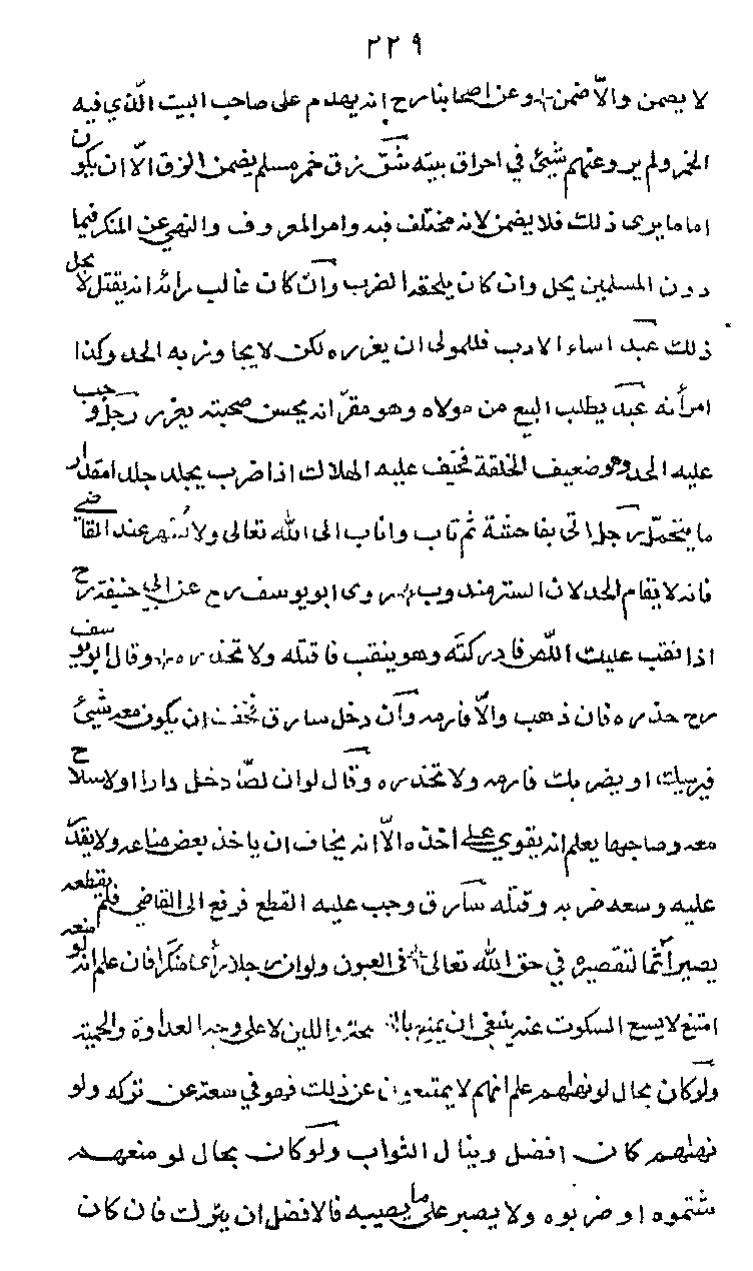 ٢٢٩
لا يضمن والّا ضمن وعن اصحابنا رح انه يهدم على صاحب البيت الّذي فيه
الخمر ولم يرو عنهم شيئ في احراق بيته شقّ زق خمر مسلم يضمن الزق الّا ان يكون
اماما يرى ذلك فلا يضمن لانه مختلف فيه وامر المعروف والنهي عن المنكر فيما
دون المسلمين يحل وان كان يلحقه الضرب وان كان غالب رائه انه يقتل لا يحل
ذلك عبد اساء الادب فللمولى ان يعزره لكن لا يجاوز به الحد وكذا
امرأته عبد يطلب البيع من مولاه وهو مقرّ انه يحسن صحبته يعزر رجل وجب
عليه الحد وهو ضعيف الخلقة فخيف عليه الهلاك اذا ضرب يجلد جلدا مقدار
ما يتحمّل رجل اتى بفاحشة ثم تاب واناب الى الله تعالى ولا عند القاضي
فانه لا يقام الحد لان الستر مندوب روى ابو يوسف رح عن ابي حنيفة رح
اذا نقب عليك اللص فادركته وهو ينقب فاقتله ولا تحذره وقال ابو يوسف
رح حذره فان ذهب والّا فارمه وان دخل سارق فخفت ان يكون معه شيئ
او يضربك فارمه ولا تحذره وقال لو ان لصّا دخل دارا ولا سلاح
معه وصاحبها يعلم انه يقوي على اخذه الّا انه يخاف ان ياخذ بعض متاعه ولا يقدّر
عليه وسعه ضربه وقتله سارق وجب عليه القطع فرفع الى القاضي فلم يقطعه
يصير آثما لتقصيره في حق الله تعالى في العيون ولو ان رجلا رأى منكرا فان علم انه لو منعه
امتنع لا يسع السكوت عنه ينبغي ان يمنع واللين لا على وجه العداوة والحمية
ولو كان بحال لو نهاهم علم انهم لا يمتنعون عن ذلك فهو في سعة عن تركه ولو
نهاهم كان افضل وينال الثواب ولو كان بحال لو منعهم
شتموه او ضربوه ولا يصبر على ما يصيبه فالافضل ان يترك فان كان